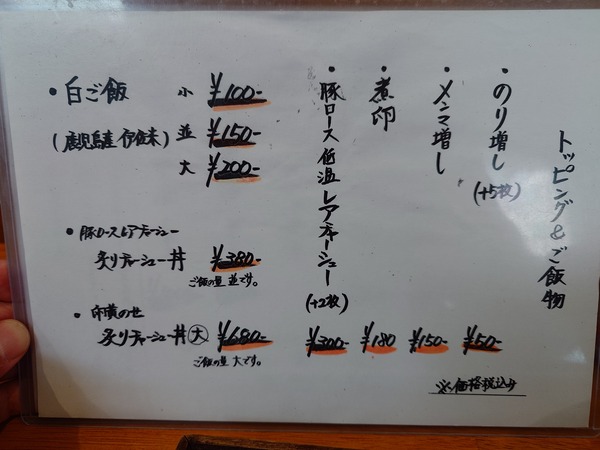 トッピング&ご飯物
・のり増し(+5枚) ¥50-
・メンマ増し ¥150-
・煮卵 ¥180
・豚ロース低温レアチャーシュー(+2枚) ¥300-
・白ご飯 小 ¥100-
(鹿児島産伊佐米) 並 ¥150-
大 ¥200-
・豚ロースレアチャーシュー
炙りチャーシュー丼 ¥380-
ご飯の量 並です。
・肉横のせ
炙りチャーシュー丼大 ¥680-
ご飯の量 大です。
※価格税込み